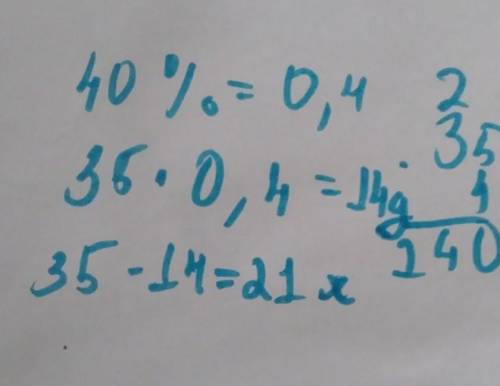 40% = 0,4
35 · 0,4 = 14g
35 - 14 = 21 x
2
35
4
140